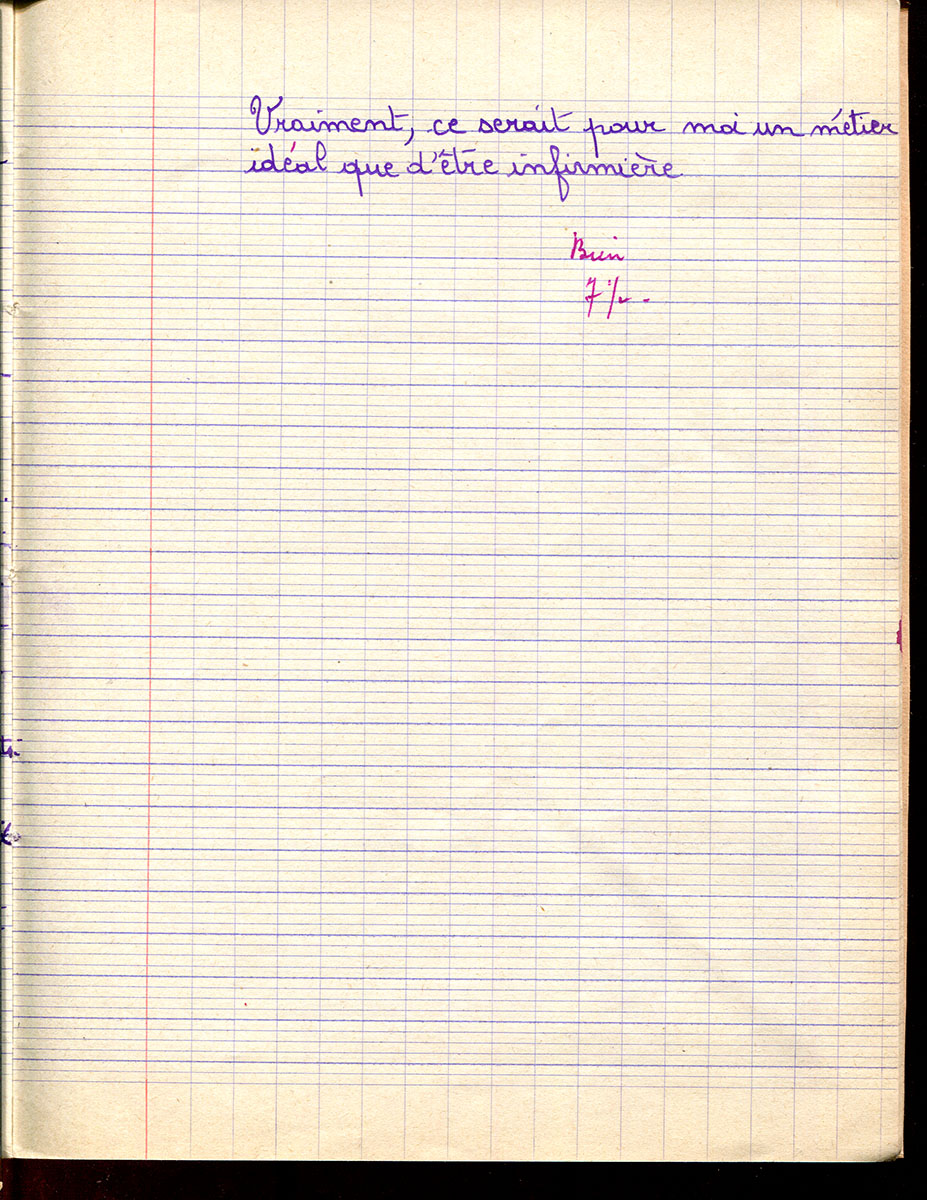 Vraiment, ce serait pour moi un métier
idéal que d'être infirmière
Bien